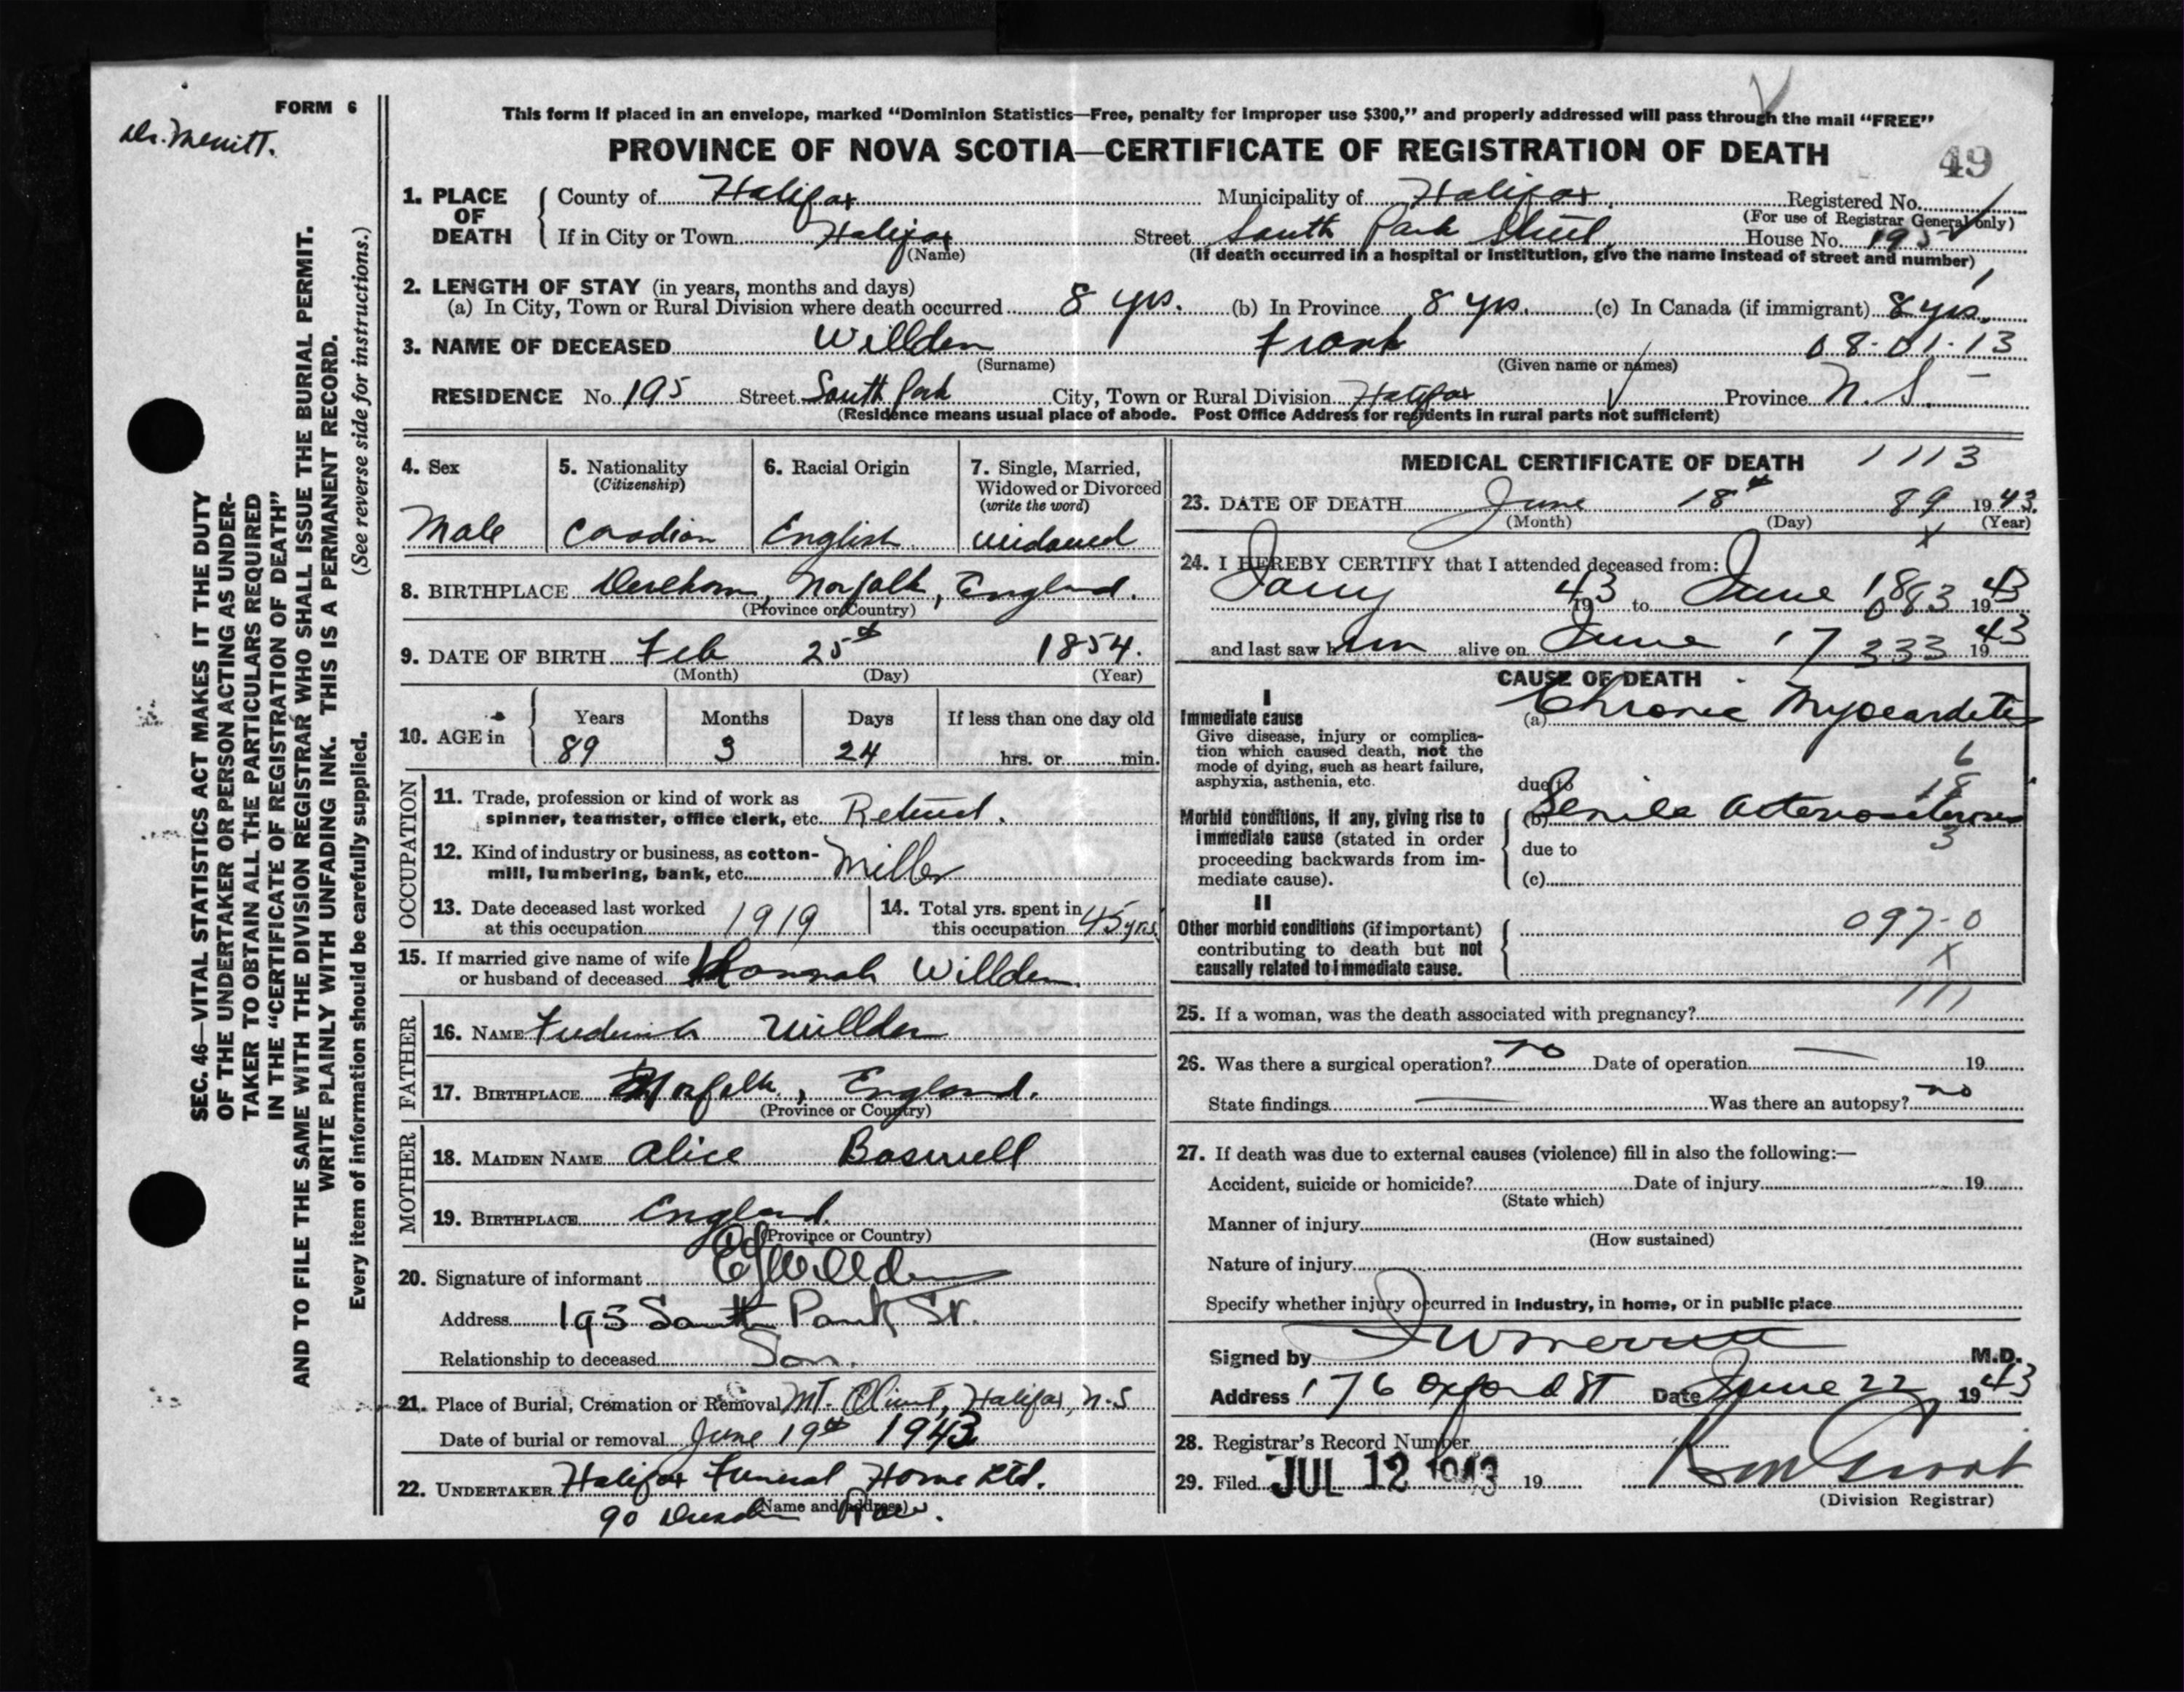 FORM 6
Dr. Merritt.
SEC. 46—VITAL STATISTICS ACT MAKES IT THE DUTY
OF THE UNDERTAKER OR PERSON ACTING AS UNDER-
TAKER TO OBTAIN ALL THE PARTICULARS REQUIRED
IN THE "CERTIFICATE OF REGISTRATION OF DEATH"
AND TO FILE THE SAME WITH THE DIVISION REGISTRAR WHO SHALL ISSUE THE BURIAL PERMIT.
WRITE PLAINLY WITH UNFADING INK. THIS IS A PERMANENT RECORD.
Every item of information should be carefully supplied. (See reverse side for instructions.)
This form if placed in an envelope, marked "Dominion Statistics—Free, penalty for improper use $300," and properly addressed will pass through the mail "FREE"
PROVINCE OF NOVA SCOTIA—CERTIFICATE OF REGISTRATION OF DEATH
49
1. PLACE OF DEATH
County of Halifax Municipality of Halifax Registered No.
(For use of Registrar General only)
If in City or Town Halifax Street South Park Street House No. 195
(Name) (If death occurred in a hospital or institution, give the name instead of street and number)
2. LENGTH OF STAY (in years, months and days)
(a) In City, Town or Rural Division where death occurred 8 yrs. (b) In Province 8 yrs. (c) In Canada (if immigrant) 8 yrs.
3. NAME OF DECEASED Willden Frank 08-01-13
(Surname) (Given name or names)
RESIDENCE No. 195 Street South Park City, Town or Rural Division Halifax Province N.S.
(Residence means usual place of abode. Post Office Address for residents in rural parts not sufficient)
4. Sex
Male
5. Nationality
(Citizenship)
Canadian
6. Racial Origin
English
7. Single, Married,
Widowed or Divorced
(write the word)
widowed
8. BIRTHPLACE Dereham, Norfolk, England.
(Province or Country)
9. DATE OF BIRTH Feb 25th 1854.
(Month) (Day) (Year)
10. AGE in
Years Months Days If less than one day old
89 3 24 hrs. or min.
OCCUPATION
11. Trade, profession or kind of work as
spinner, teamster, office clerk, etc. Retired.
12. Kind of industry or business, as cotton-
mill, lumbering, bank, etc. Miller
13. Date deceased last worked
at this occupation 1919
14. Total yrs. spent in
this occupation 45 yrs
15. If married give name of wife
or husband of deceased Hannah Willden.
FATHER
16. NAME Frederick Willden
17. BIRTHPLACE Norfolk, England.
(Province or Country)
MOTHER
18. MAIDEN NAME Alice Boswell
19. BIRTHPLACE England
(Province or Country)
20. Signature of informant EJ Willden
Address 195 South Park St.
Relationship to deceased Son.
21. Place of Burial, Cremation or Removal Mt. Olivet, Halifax, N.S
Date of burial or removal June 19th 1943
22. UNDERTAKER Halifax Funeral Home Ltd.
(Name and address)
90 Dresden Row.
MEDICAL CERTIFICATE OF DEATH 1113
23. DATE OF DEATH June 18th 89 1943.
(Month) (Day) (Year)
x
24. I HEREBY CERTIFY that I attended deceased from:
1943 to June 18 083 1943
and last saw him alive on June 17 333 1943
CAUSE OF DEATH
I
Immediate cause
Give disease, injury or complica-
tion which caused death, not the
mode of dying, such as heart failure,
asphyxia, asthenia, etc.
(a) Chronic Myocarditis
6
18
due to
Morbid conditions, if any, giving rise to
immediate cause (stated in order
proceeding backwards from im-
mediate cause).
(b) Senile Arteriosclerosis
3
due to
(c)
II
Other morbid conditions (if important)
contributing to death but not
causally related to immediate cause.
097-0
X
111
25. If a woman, was the death associated with pregnancy?
26. Was there a surgical operation? no Date of operation — 19
State findings — Was there an autopsy? no
27. If death was due to external causes (violence) fill in also the following:—
Accident, suicide or homicide? Date of injury 19
(State which)
Manner of injury
(How sustained)
Nature of injury
Specify whether injury occurred in Industry, in home, or in public place
Signed by W Merritt M.D.
Address 176 Oxford St Date June 22 1943
28. Registrar's Record Number
29. Filed JUL 12 1943 19
(Division Registrar)